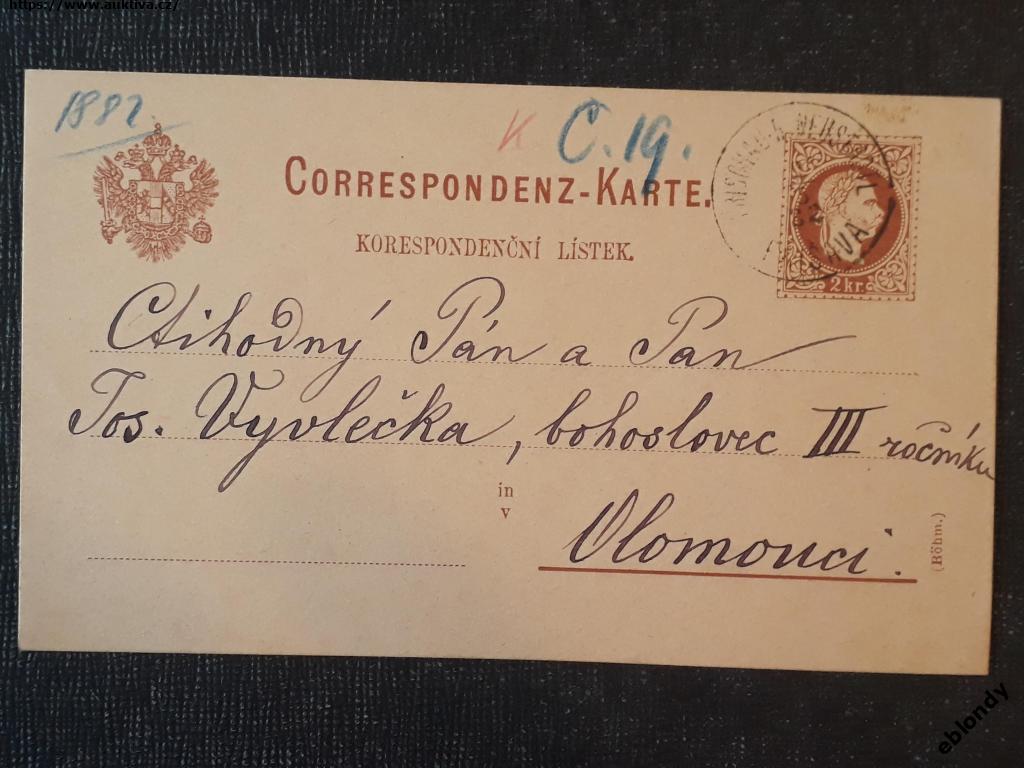 https://www.auktiva.cz/
1882.
K C.19.
CORRESPONDENZ-KARTE.
KORESPONDENČNÍ LÍSTEK.
2 kr.
Ctihodný Pán a Pan
Jos. Vyvlečka, bohoslovec III ročníku
in
v
Olomouci.
(Böhm.)
eblondy